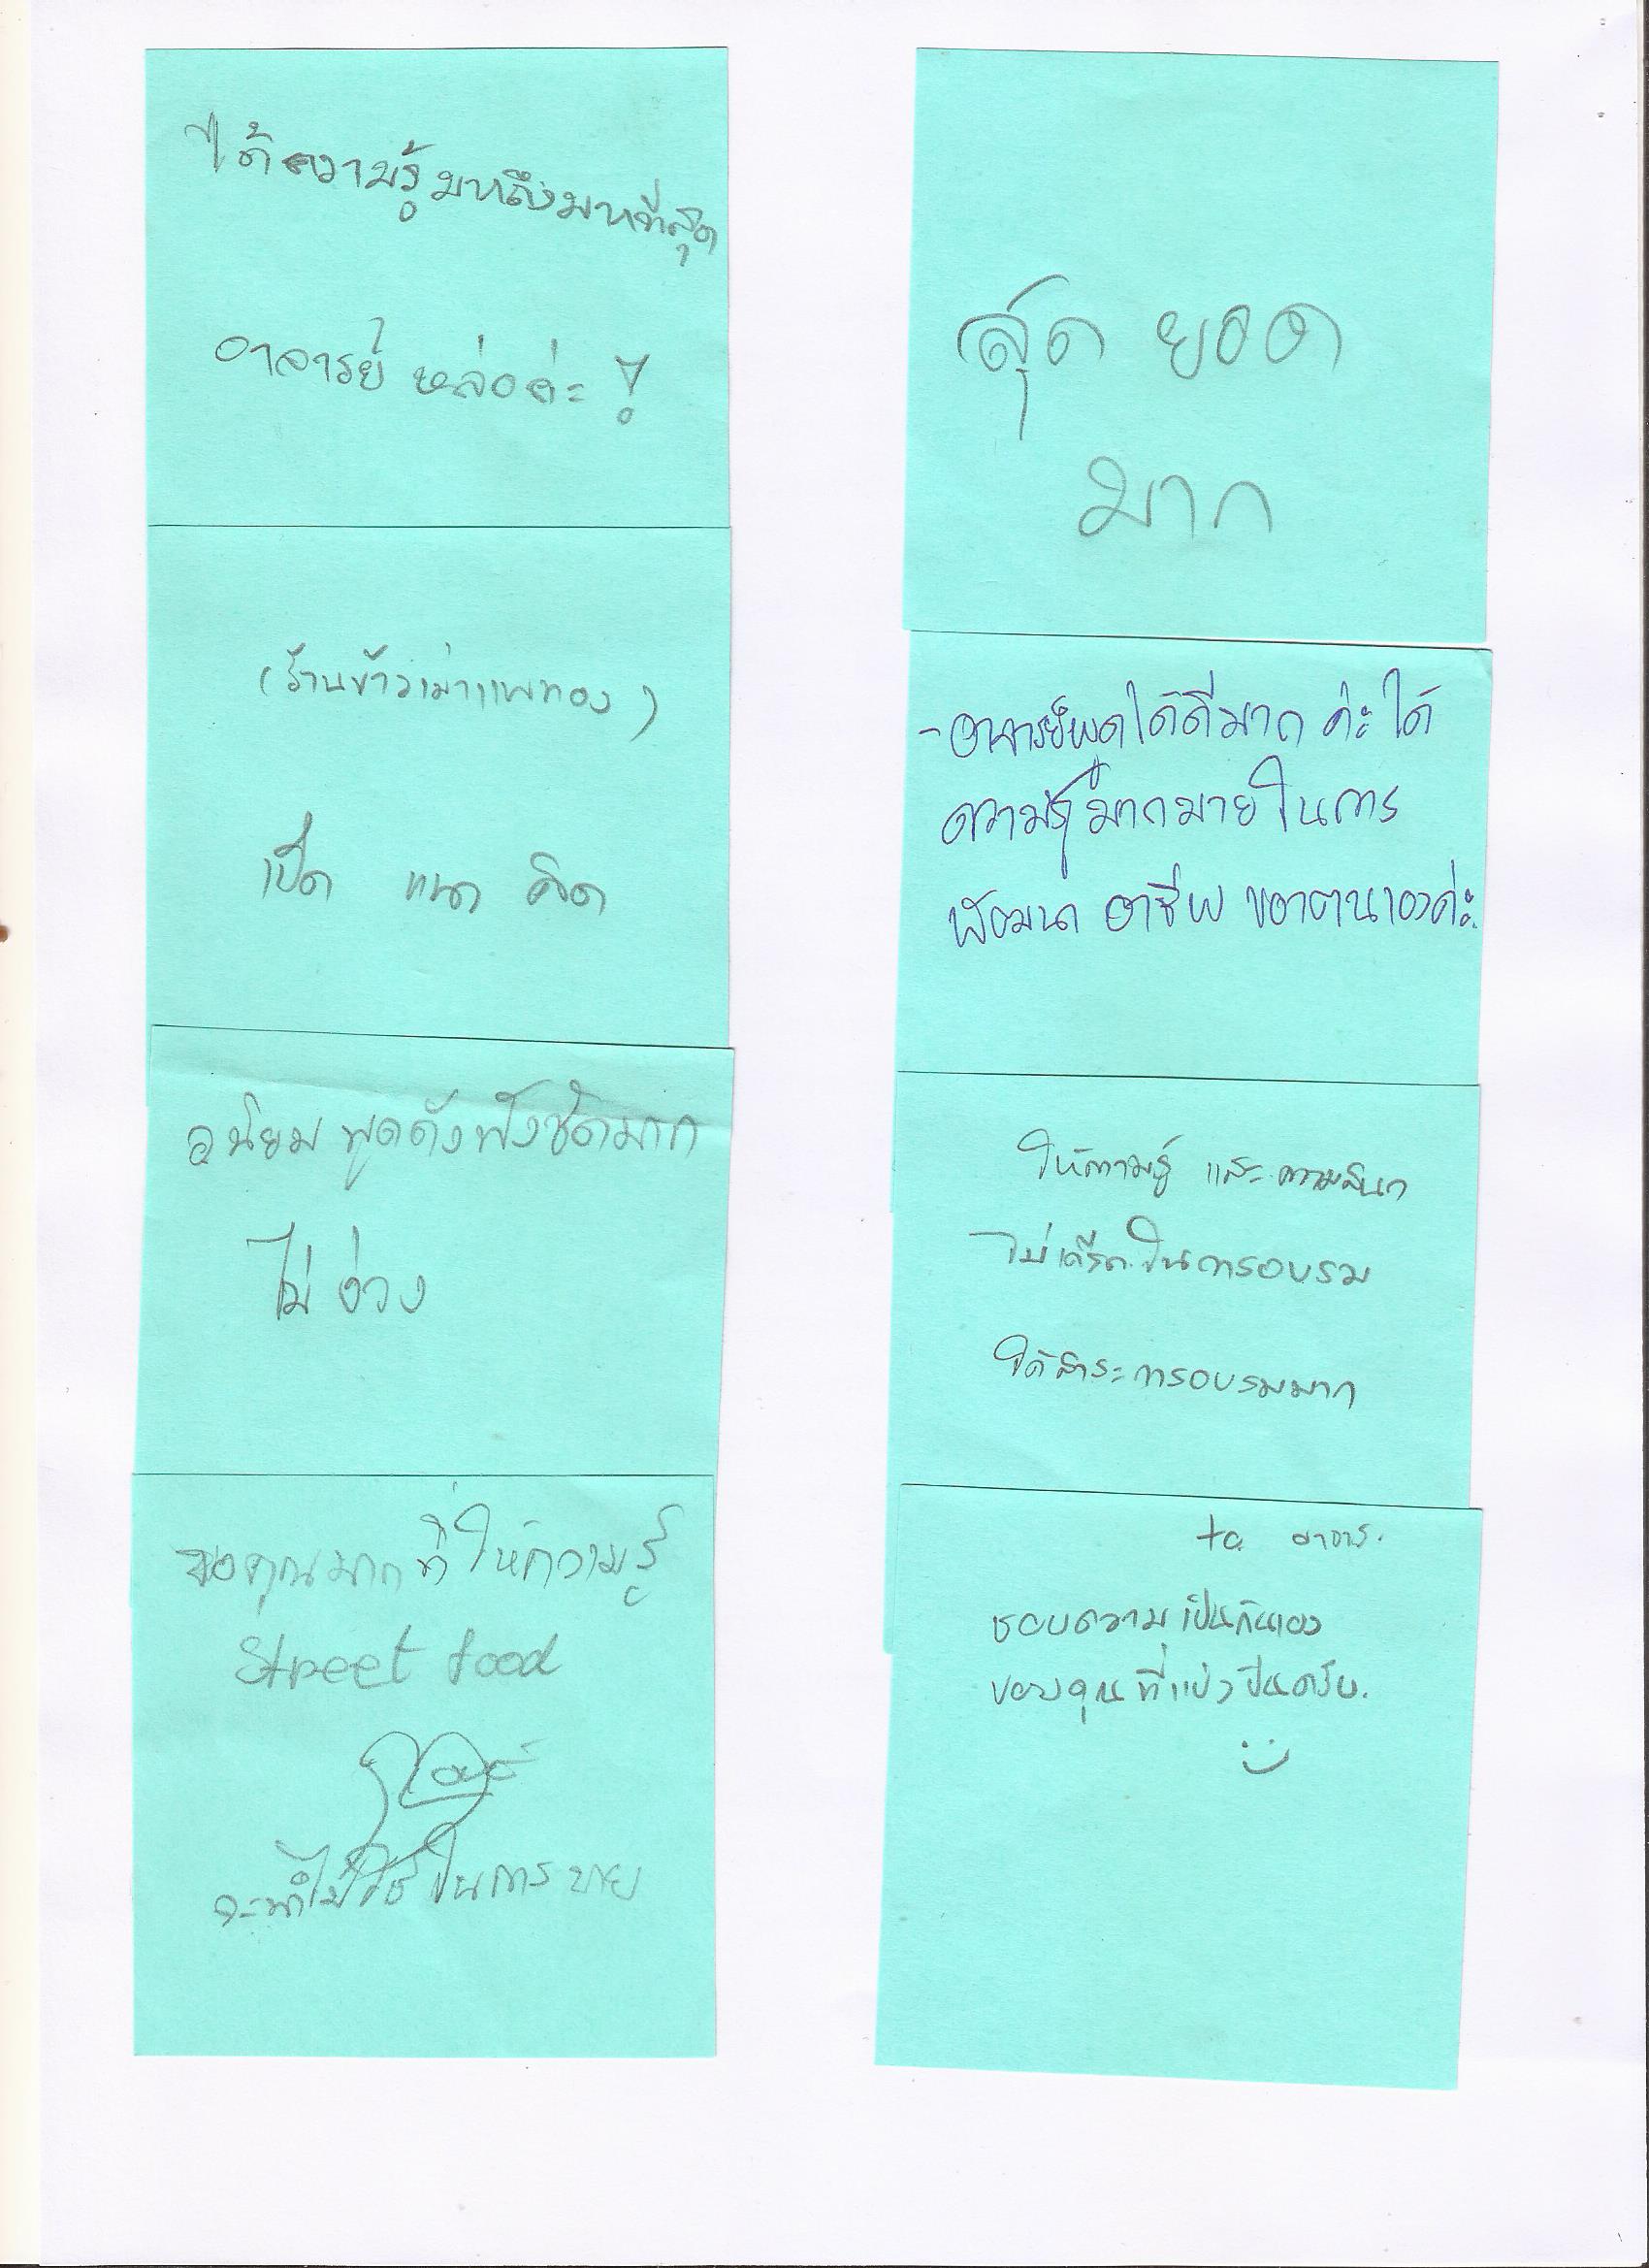 ได้ความรู้มากถึงมากที่สุด
อาจารย์ หล่อค่ะ !
(ร้านข้าวเม่าแพทอง)
เปิด แนว คิด
อ.นิยม พูดดังฟังชัดมาก
ไม่ ง่วง
ขอบคุณมากที่ให้ความรู้
Street food
จะนำไปใช้ในการขาย
สุด ยอด
มาก
- อาจารย์พูดได้ดีมาก ค่ะ ได้
ความรู้มากมายในการ
พัฒนา อาชีพ ของตนเองค่ะ
ให้ความรู้ และความสนุก
ไม่เครียดในการอบรม
ได้สาระการอบรมมาก
to อาจาร.
ชอบความเป็นกันเอง
ขอบคุณที่แบ่งปันครับ.